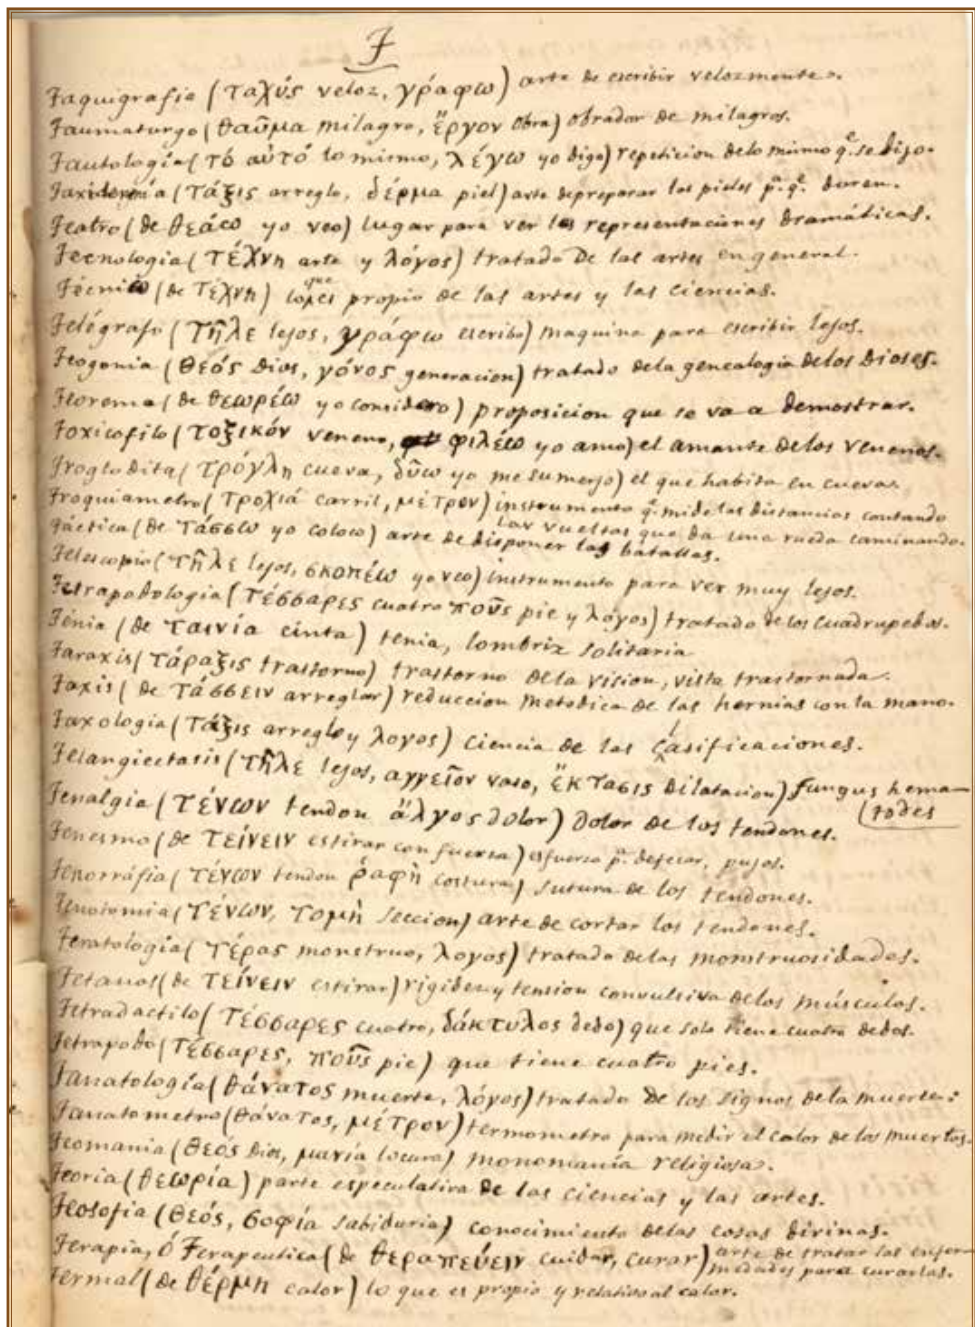 T
Taquigrafia (ταχύς veloz, γράφω) arte de escribir velozmente.
Taumaturgo (θαῦμα milagro, ἔργον obra) obrador de milagros.
Tautologia (τό αὐτό lo mismo, λέγω yo digo) repeticion de lo mismo q.e se dijo.
Taxidermia (τάξις arreglo, δέρμα piel) arte de preparar las pieles p.a q.e duren.
Teatro (de θεάω yo veo) lugar para ver las representaciones dramáticas.
Tecnologia (τέχνη arte y λόγος) tratado de las artes en general.
Técnico (de τέχνη) lo que es propio de las artes y las ciencias.
Telégrafo (τῆλε lejos, γράφω escribo) maquina para escribir lejos.
Teogonia (θεός Dios, γόνος generacion) tratado de la genealogia de los Dioses.
Teorema (de θεωρέω yo considero) proposicion que se va a demostrar.
Toxicofilo (τοξικόν veneno, φιλέω yo amo) el amante de los venenos.
Troglodita (τρόγλη cueva, δῦω yo me sumerjo) el que habita en cuevas.
Troquiametro (τροχιά carril, μέτρον) instrumento q.e mide las distancias contando
las vueltas que da una rueda caminando.
Táctica (de τάσσω yo coloco) arte de disponer las batallas.
Telescopio (τῆλε lejos, σκοπέω yo veo) instrumento para ver muy lejos.
Tetrapodologia (τέσσαρες cuatro πούς pie y λόγος) tratado de los cuadrupedos.
Ténia (de ταινία cinta) tenia, lombriz solitaria
Taraxis (τάραξις trastorno) trastorno de la vision, vista trastornada.
Taxis (de τάσσειν arreglar) reduccion metodica de las hernias con la mano.
Taxologia (τάξις arreglo y λογος) ciencia de las clasificaciones.
Telangiectasis (τῆλε lejos, αγγεῖον vaso, ἔκτασις dilatacion) fungus hema-
todes
Tenalgia (τένων tendon ἄλγος dolor) dolor de los tendones.
Tenesmo (de τείνειν estirar con fuerza) esfuerzo p.a defecar, pujos.
Tenorráfia (τένων tendon ῥαφὴ costura) sutura de los tendones.
Tenotomia (τένων, τομὴ seccion) arte de cortar los tendones.
Teratologia (τέρας monstruo, λογος) tratado de las monstruosidades.
Tetanos (de τείνειν estirar) rigidez y tension convulsiva de los músculos.
Tetradactilo (τέσσαρες cuatro, δάκτυλος dedo) que solo tiene cuatro dedos.
Tetrapodo (τέσσαρες, πούς pie) que tiene cuatro pies.
Tanatologia (θάνατος muerte, λόγος) tratado de los signos de la muerte.
Tanatometro (θάνατος, μέτρον) termometro para medir el calor de los muertos.
Teomania (θεός Dios, μανία locura) monomanía religiosa.
Teoria (θεωρία) parte especulativa de las ciencias y las artes.
Teosofia (θεός, σοφία sabiduria) conocimiento de las cosas divinas.
Terapia, ó Terapeutica (de θεραπεύειν cuidar, curar) arte de tratar las enfer-
medades para curarlas.
Termal (de θέρμη calor) lo que es propio y relativo al calor.